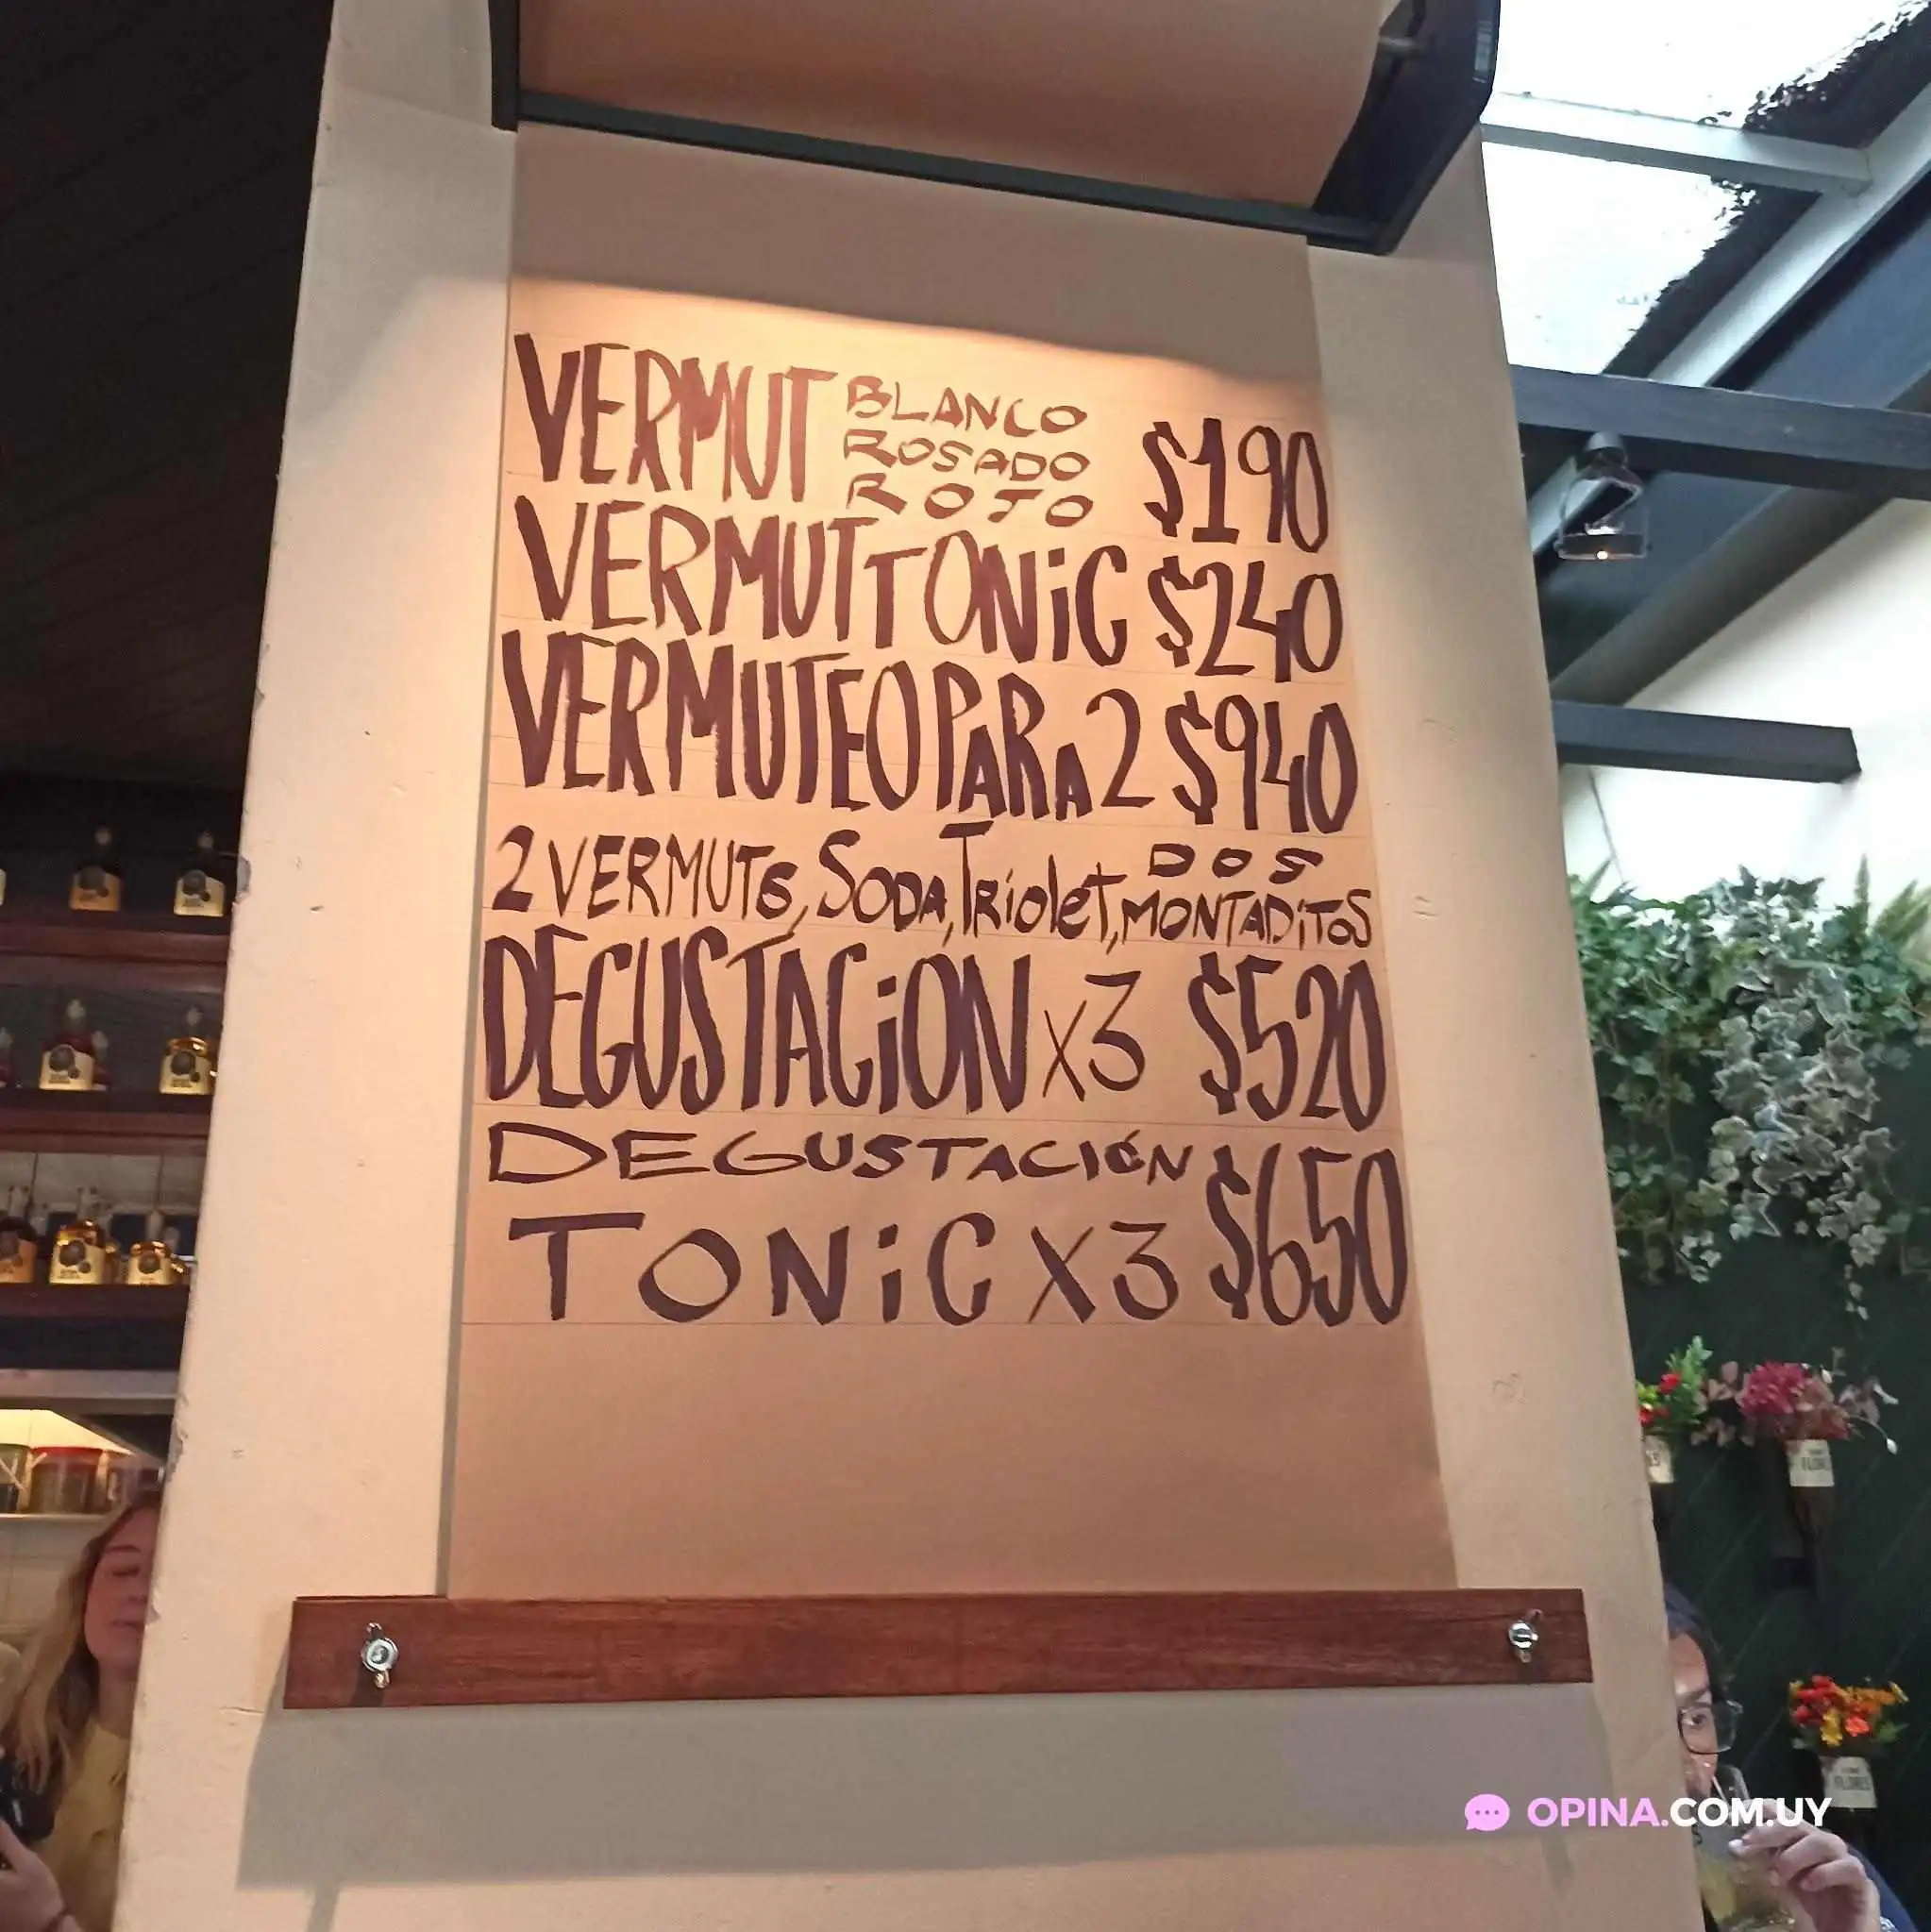 VERMUT BLANCO ROSADO ROJO $190
VERMUT TONiC $240
VERMUTEO PARA 2 $940
2 VERMUTS, SODA, TRiolet, DOS MONTADiTOS
DEGUSTACiON x3 $520
DEGUSTACIÓN
TONiC X3 $650
FLORES
OPINA.COM.UY